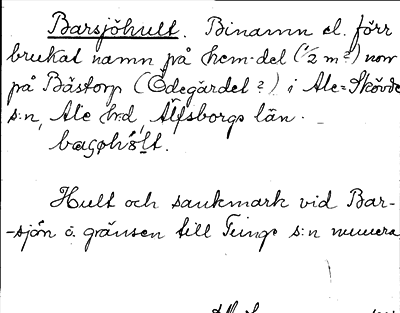 Barsjöhult. Binamn el. förr
brukat namn på hem.del (1/2 m?) norr
på Båstorp (Ödegärdet?) i Ale-Skövde
s:n, Ale hd, Älfsborgs län.
Hult och sankmark vid Bar-
-sjön o. gränsen till Tunge s:n numera